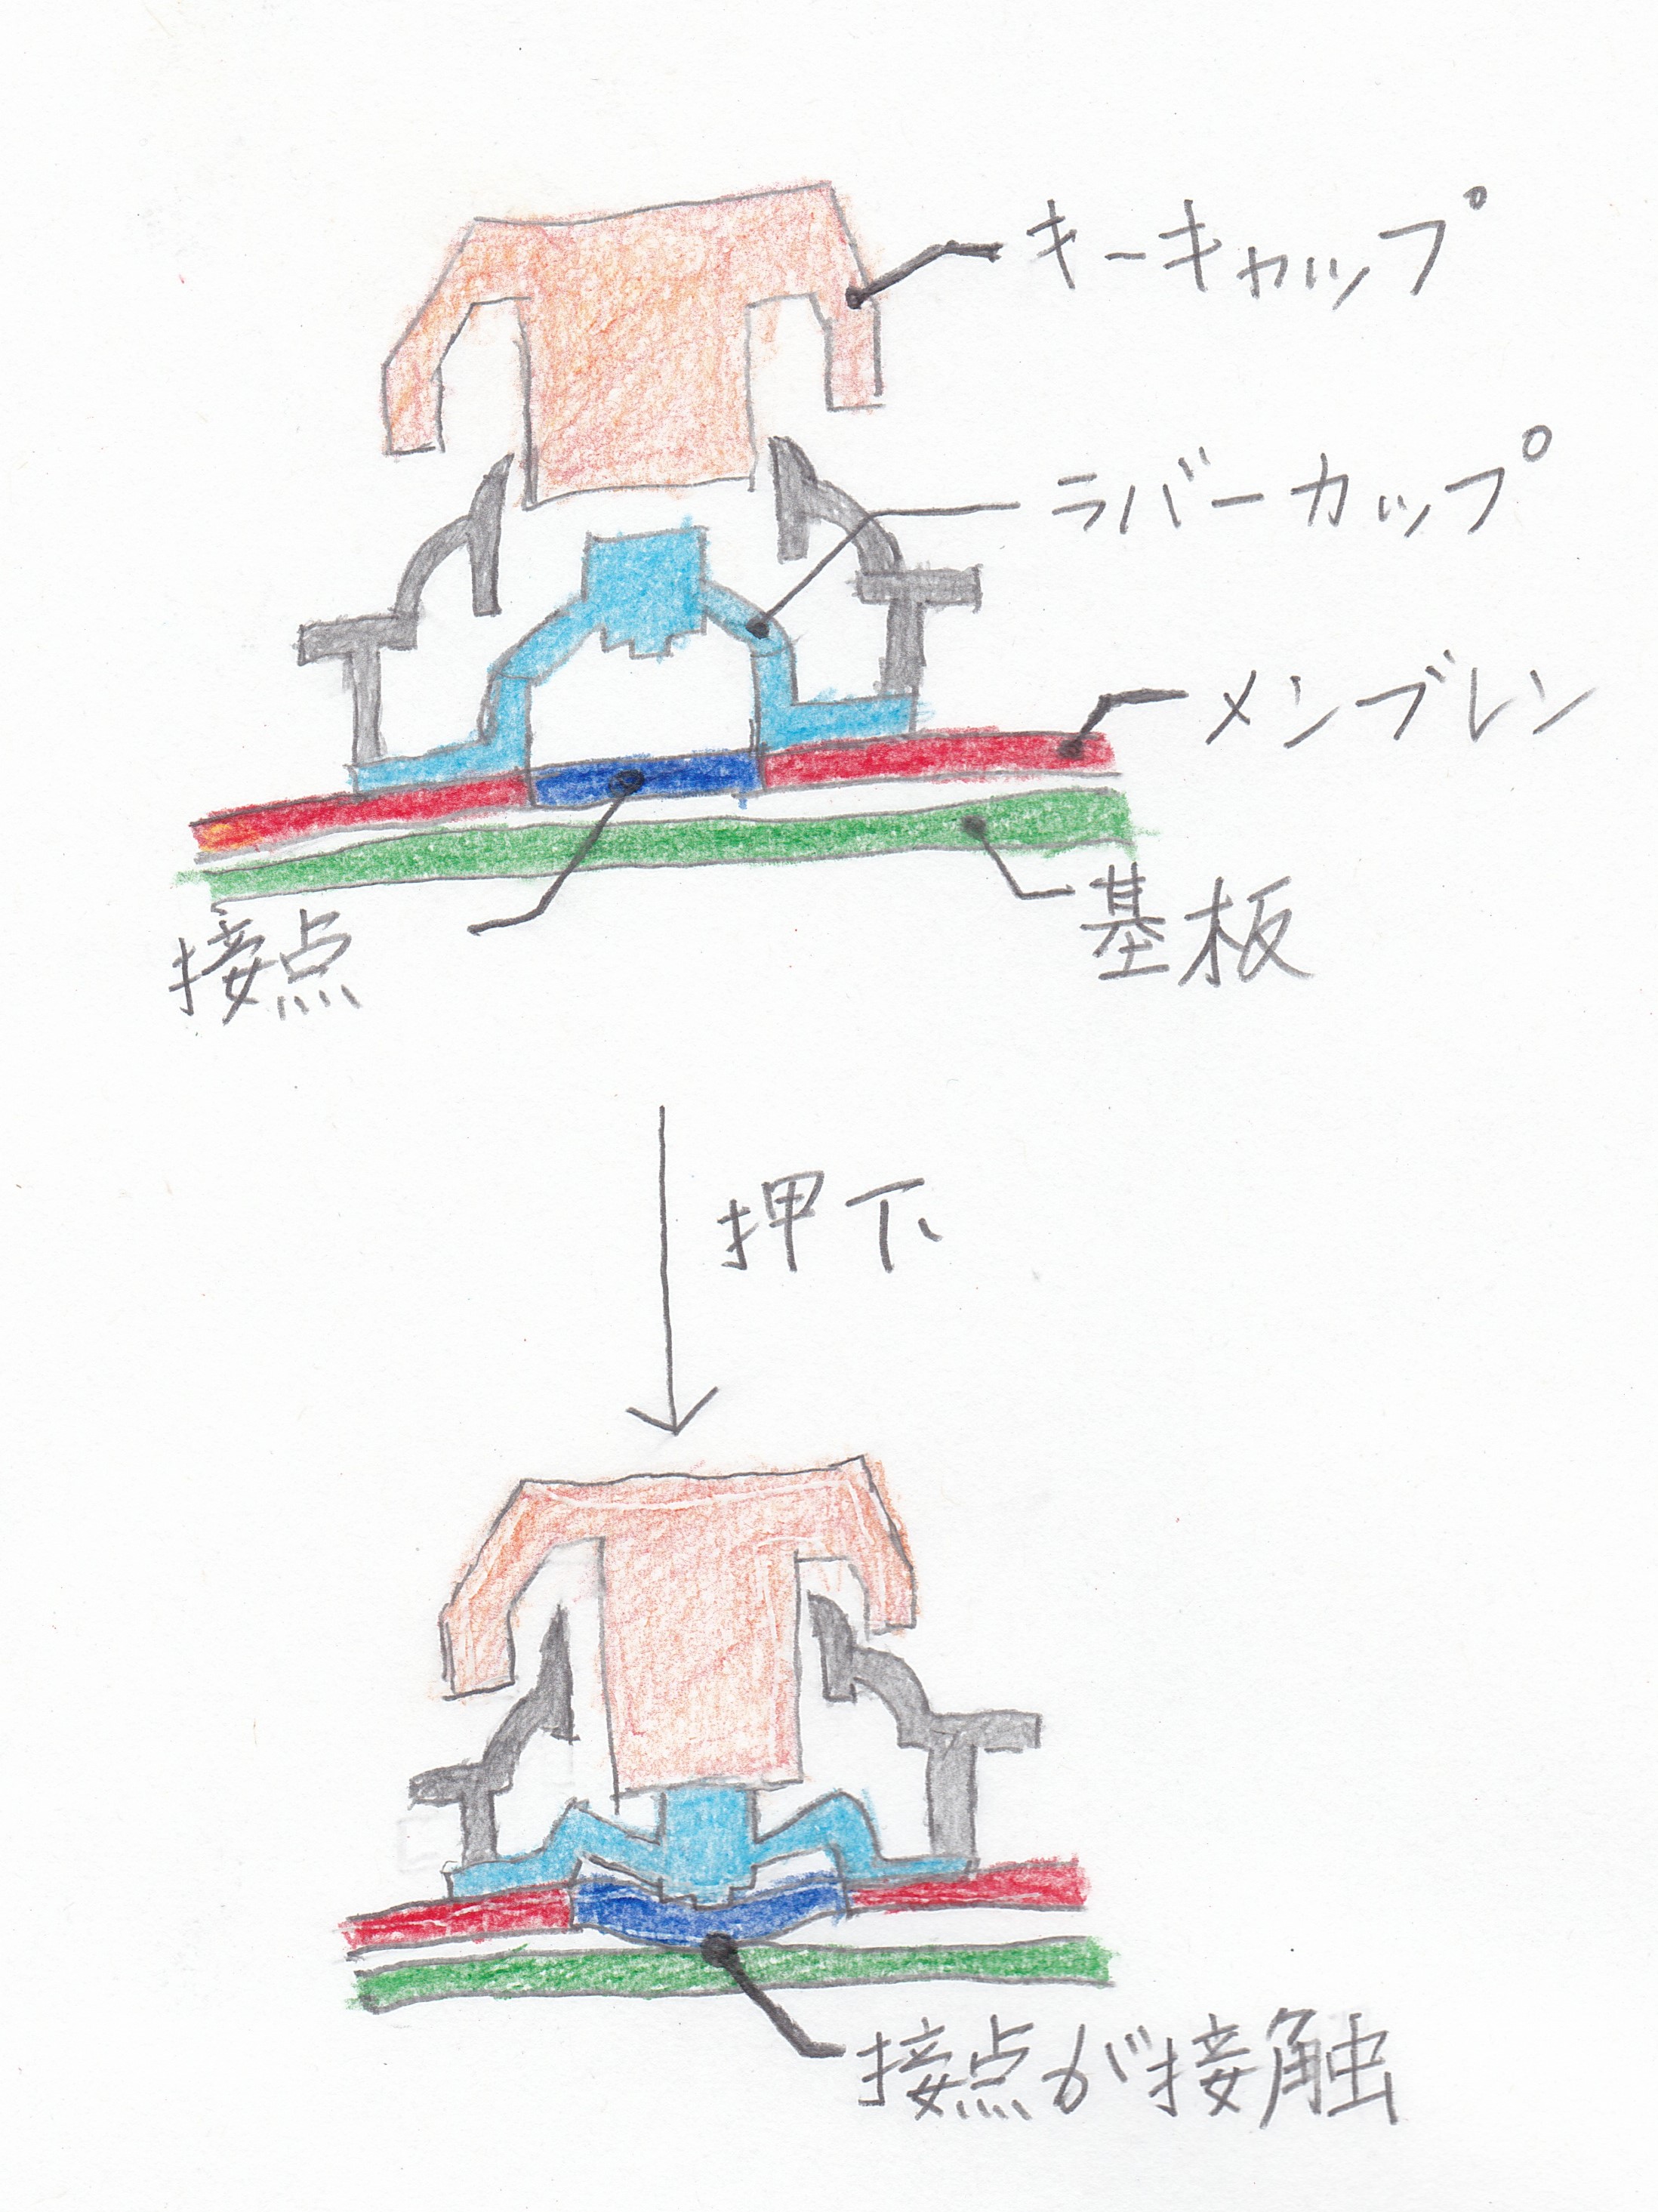 キーキャップ
ラバーカップ
メンブレン
接点
基板
押下
接点が接触